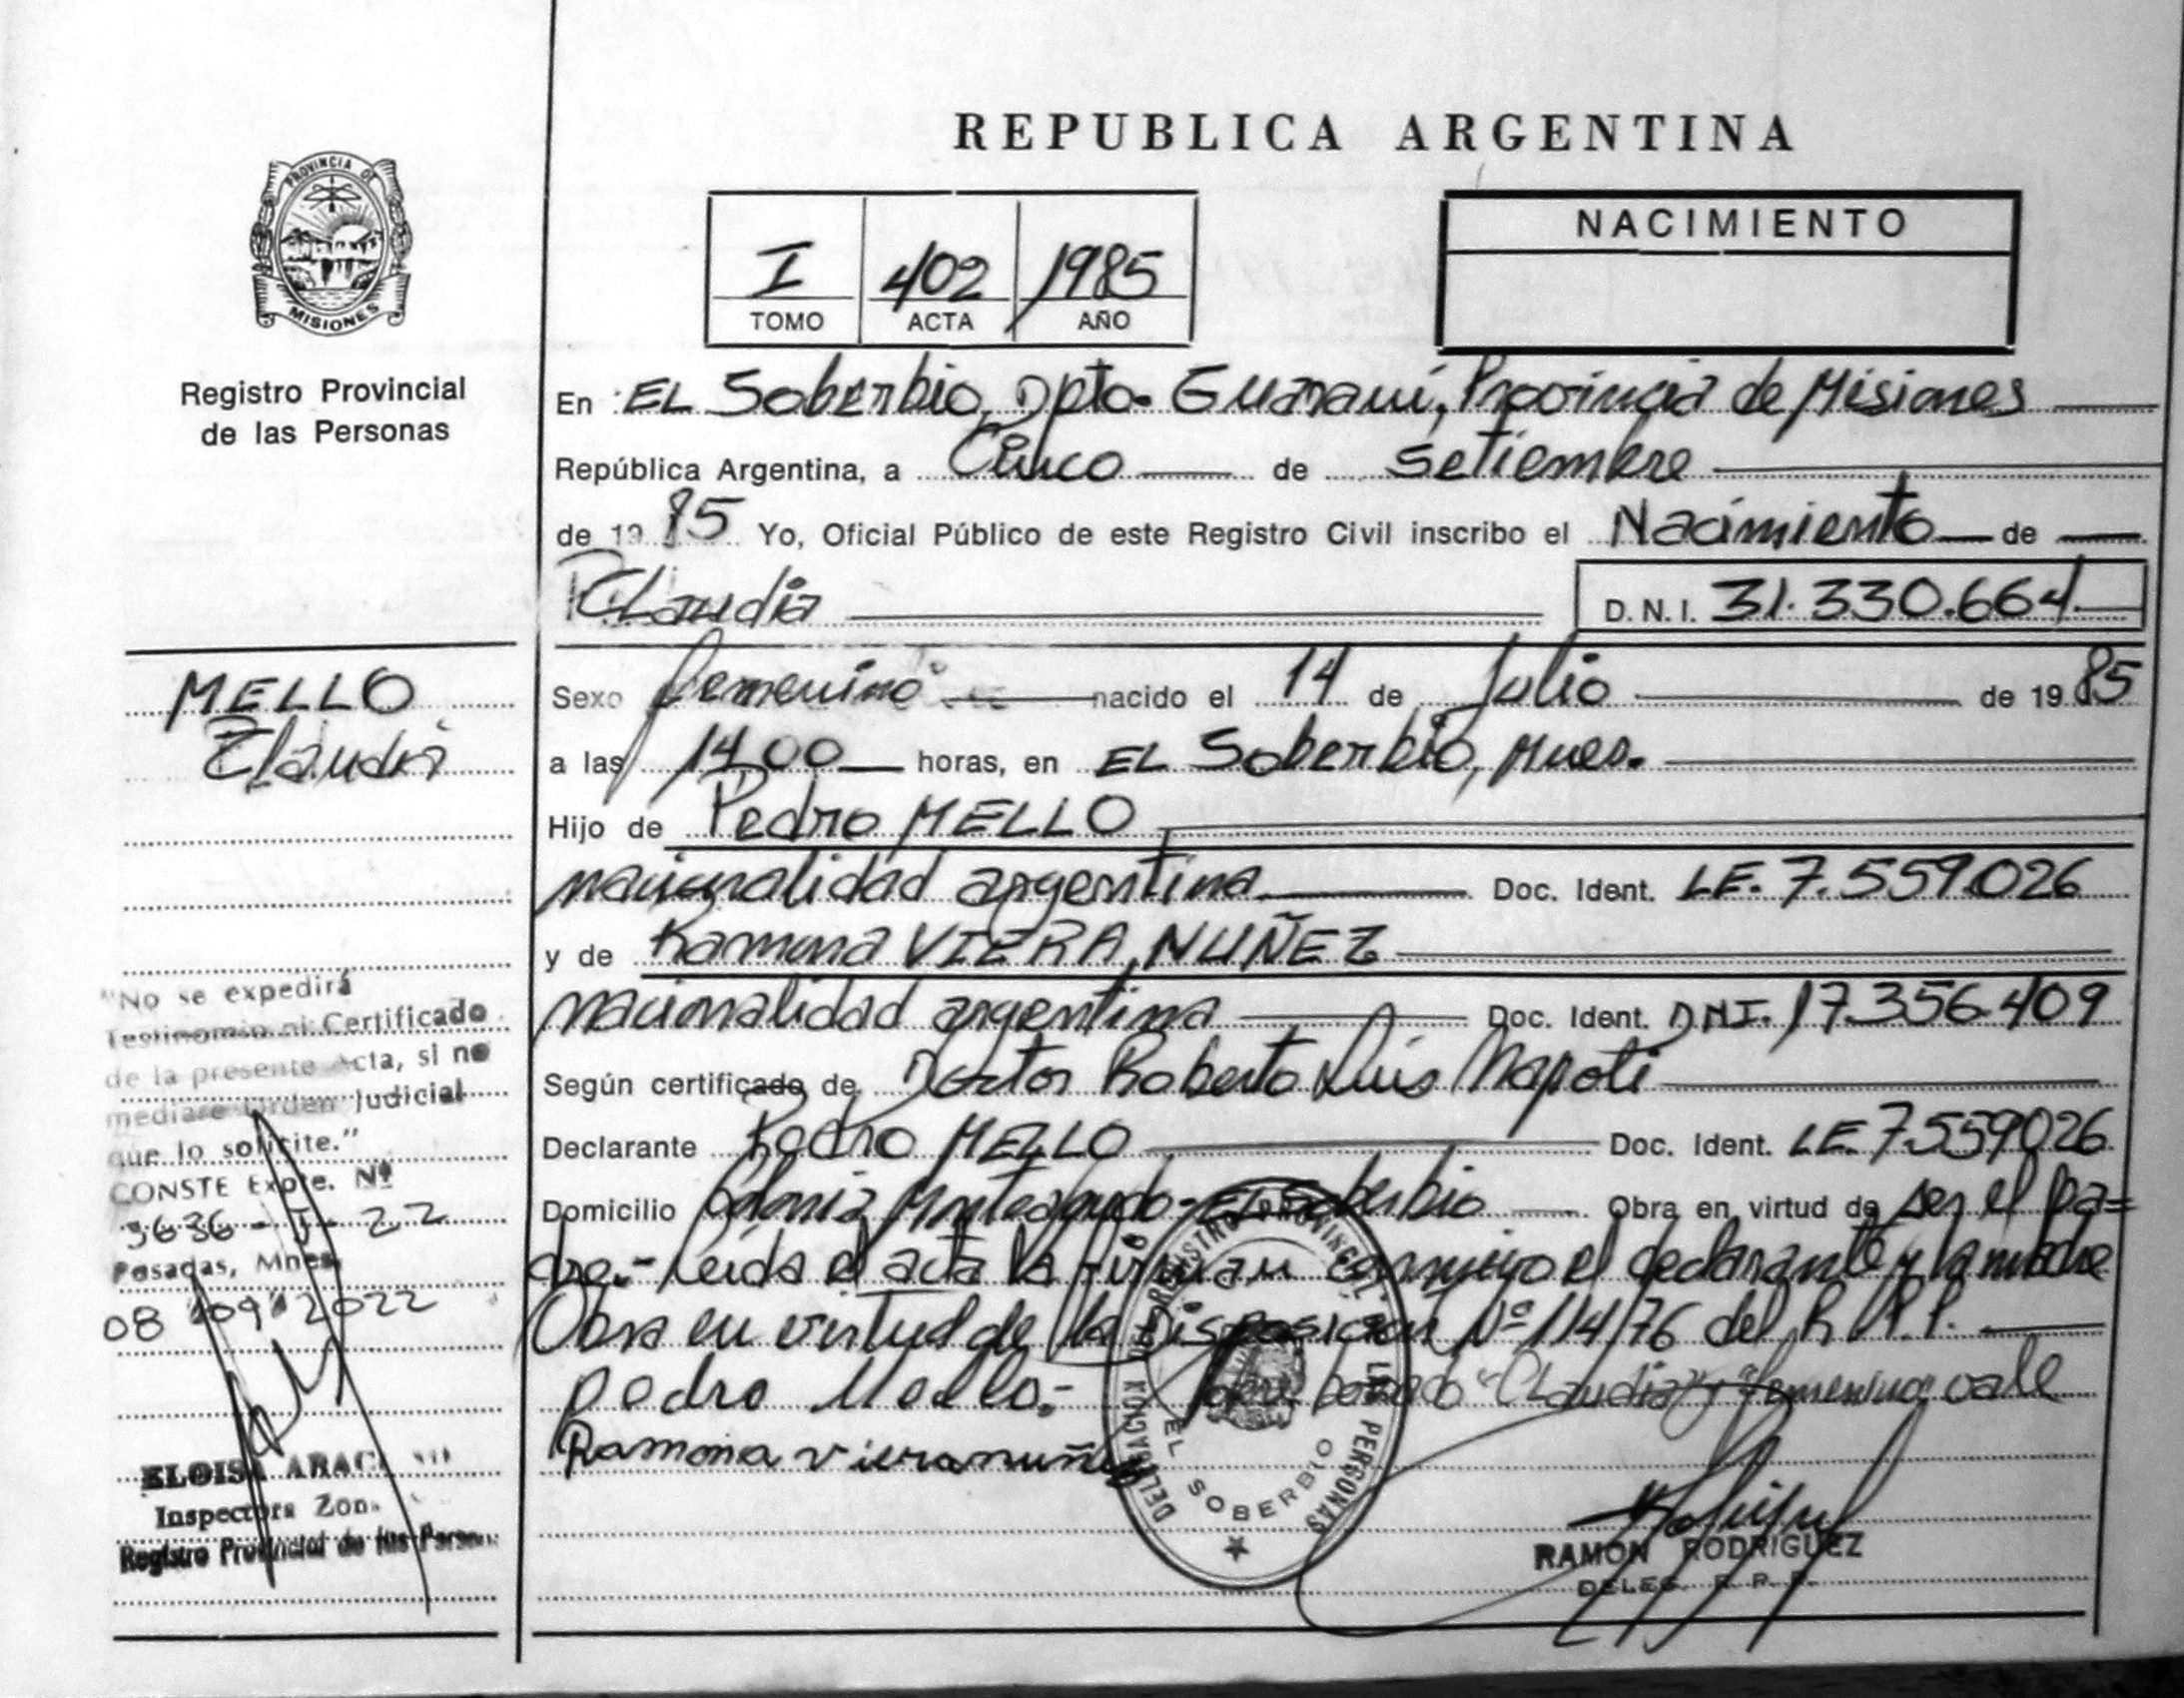 REPUBLICA ARGENTINA
PROVINCIA DE
MISIONES
Registro Provincial
de las Personas
I 402 1985
TOMO ACTA AÑO
NACIMIENTO
En EL Soberbio, Dpto. Guarani, Provincia de Misiones
República Argentina, a Cinco de Setiembre
de 1985 Yo, Oficial Público de este Registro Civil inscribo el Nacimiento de
Claudia D.N.I. 31.330.664
MELLO
Claudia
Sexo femenino nacido el 14 de Julio de 1985
a las 14 00 horas, en EL Soberbio, Mnes.
Hijo de Pedro MELLO
nacionalidad argentina Doc. Ident. LE. 7.559.026
y de Ramona VIERA NUÑEZ
nacionalidad argentina Doc. Ident. DNI. 17.356.409
Según certificado de Doctor Roberto Luis Napoli
Declarante Pedro MELLO Doc. Ident. LE. 7.559026
Domicilio Colonia Monteagudo - El Soberbio Obra en virtud de ser el pa=
dre.- Leída el acta la firman conmigo el declarante y la madre
Obra en virtud de la Disposición Nº 114/76 del R.P.P.
pedro Mello.- borrado "Claudia" y "femenino" vale
Ramona viera nuñez
"No se expedirá
Testimonio ni Certificado
de la presente Acta, si no
mediare Orden Judicial
que lo solicite."
CONSTE Expte. Nº
3636 - - 22
Posadas, Mnes.
08 09 2022
ELOISA
Inspectora
Registro Provincial de las
DELEGACION DEL REGISTRO PROVINCIAL DE LAS PERSONAS
EL SOBERBIO
RAMON RODRIGUEZ
DELEG. R. P. P.